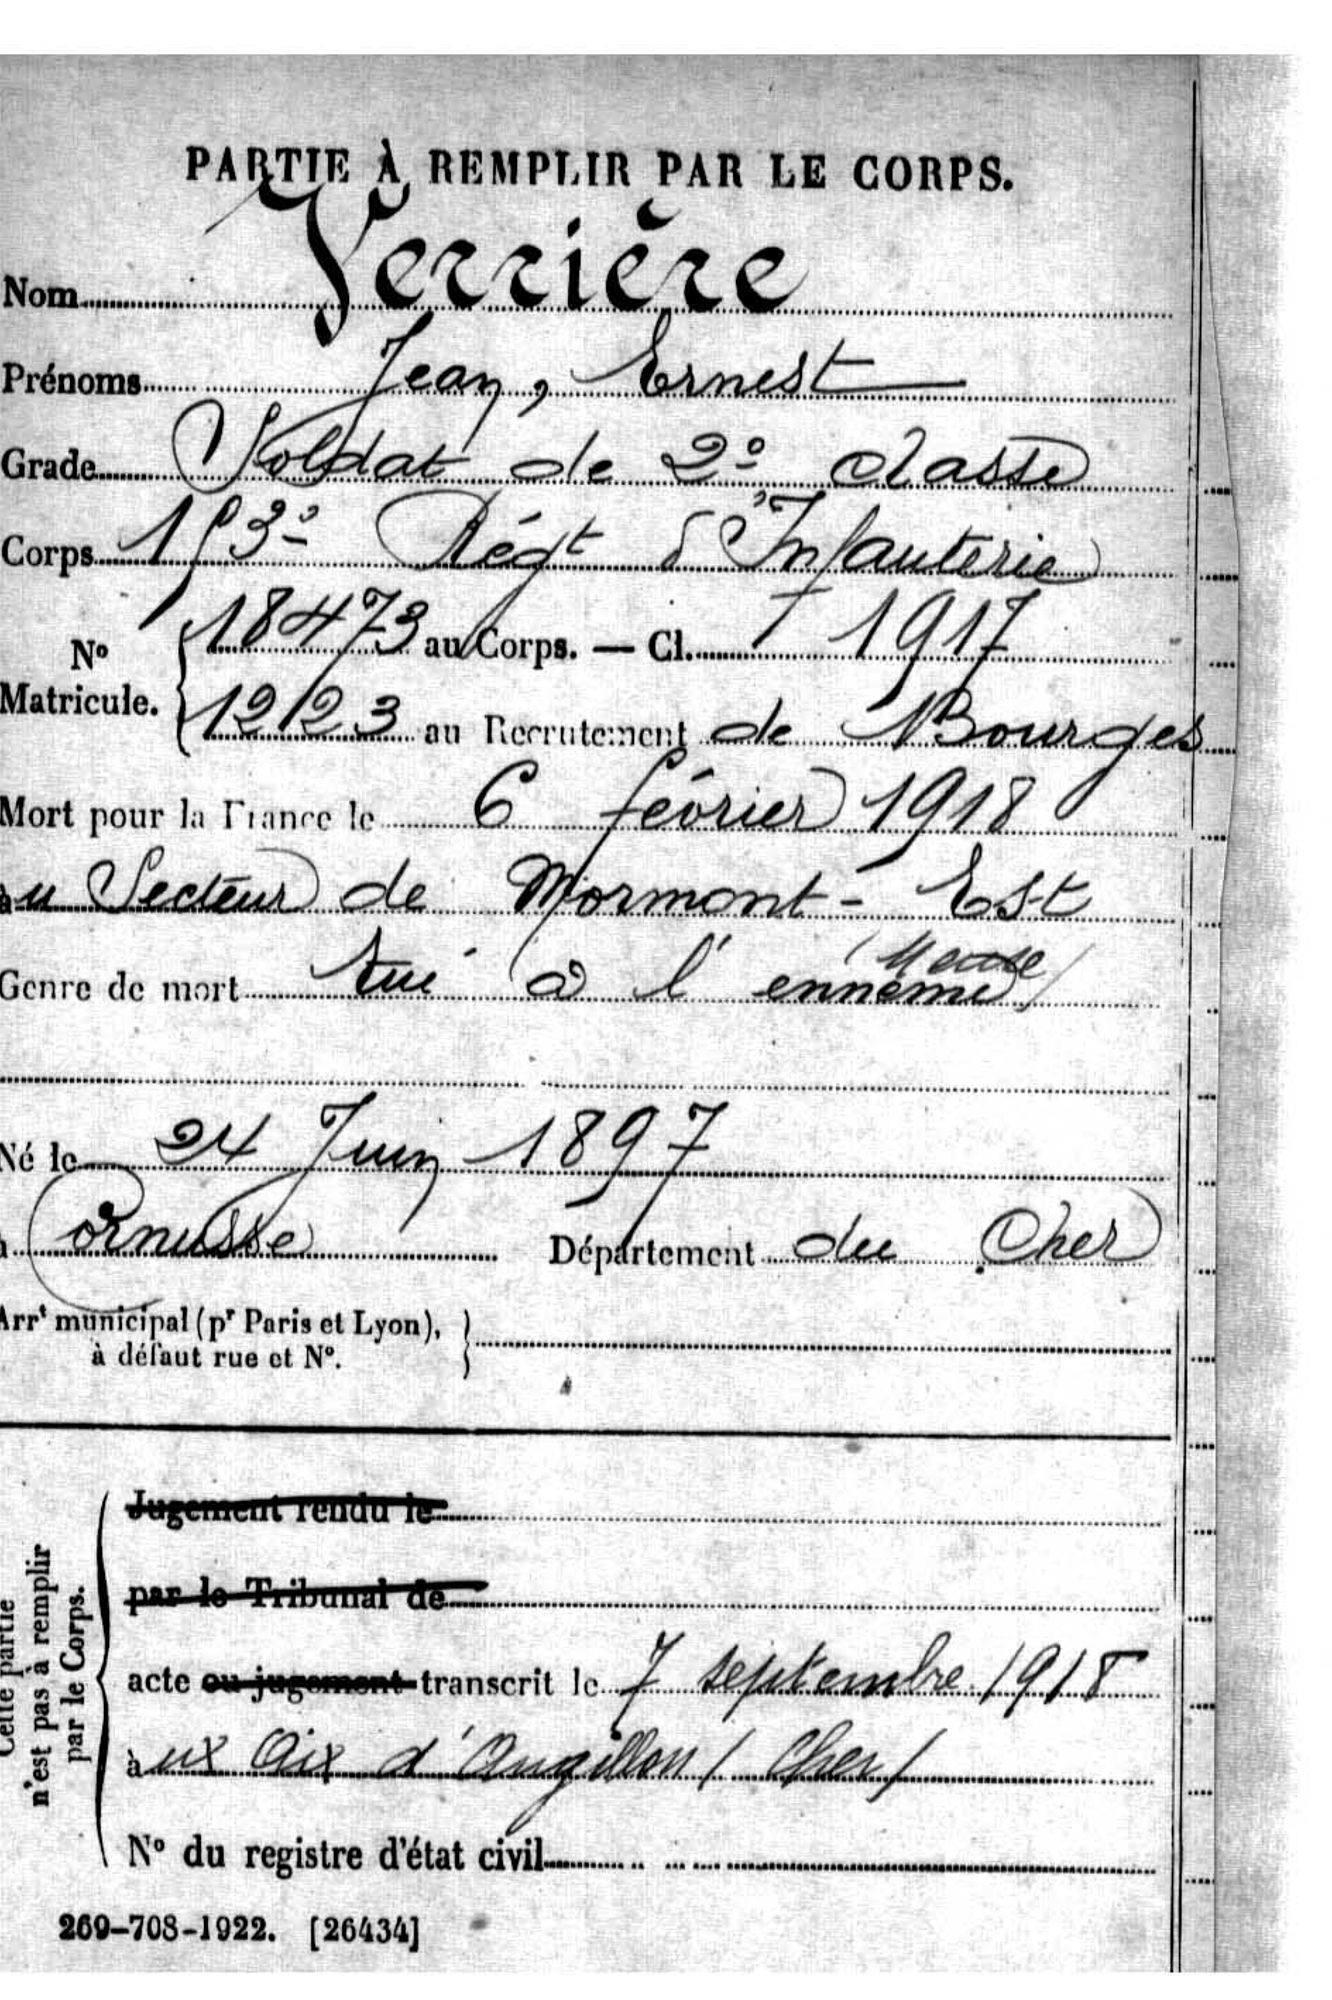 PARTIE À REMPLIR PAR LE CORPS.
Nom Verrière
Prénoms Jean, Ernest
Grade Soldat de 2e classe
Corps 153e Régt d'Infanterie
No Matricule. 18473 au Corps. — Cl. 1917
1223 au Recrutement de Bourges
Mort pour la France le 6 février 1918
au Secteur de Mormont - Est
(Meuse)
Genre de mort tué à l'ennemi
Né le 24 Juin 1897
à Cornusse Département du Cher
Arrt municipal (pr Paris et Lyon),
à défaut rue et No.
Jugement rendu le
par le Tribunal de
acte ou jugement transcrit le 7 septembre 1918
aux Aix d'Angillon (Cher)
No du registre d'état civil
Cette partie
n'est pas à remplir
par le Corps.
269-708-1922. [26434]